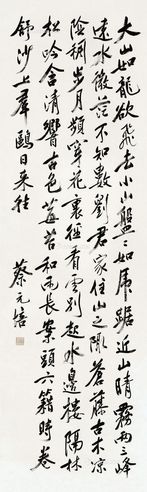 大山如龍欲飛去小山盤々如虎踞近山晴霧兩三峰
遠水微茫不知數劉君家住山之陬蒼藤古木凉
陰稠步月頻穿花裏徑看雲別起水邊樓隔林
松吟含清響古色莓苔和雨長案頭六籍時卷
舒沙上羣鷗日來往
蔡元培